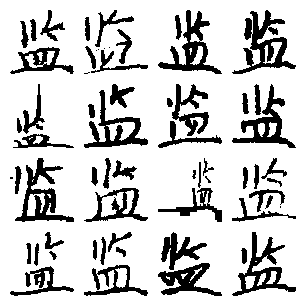 监监监监
监监监监
监监监监
监监监监